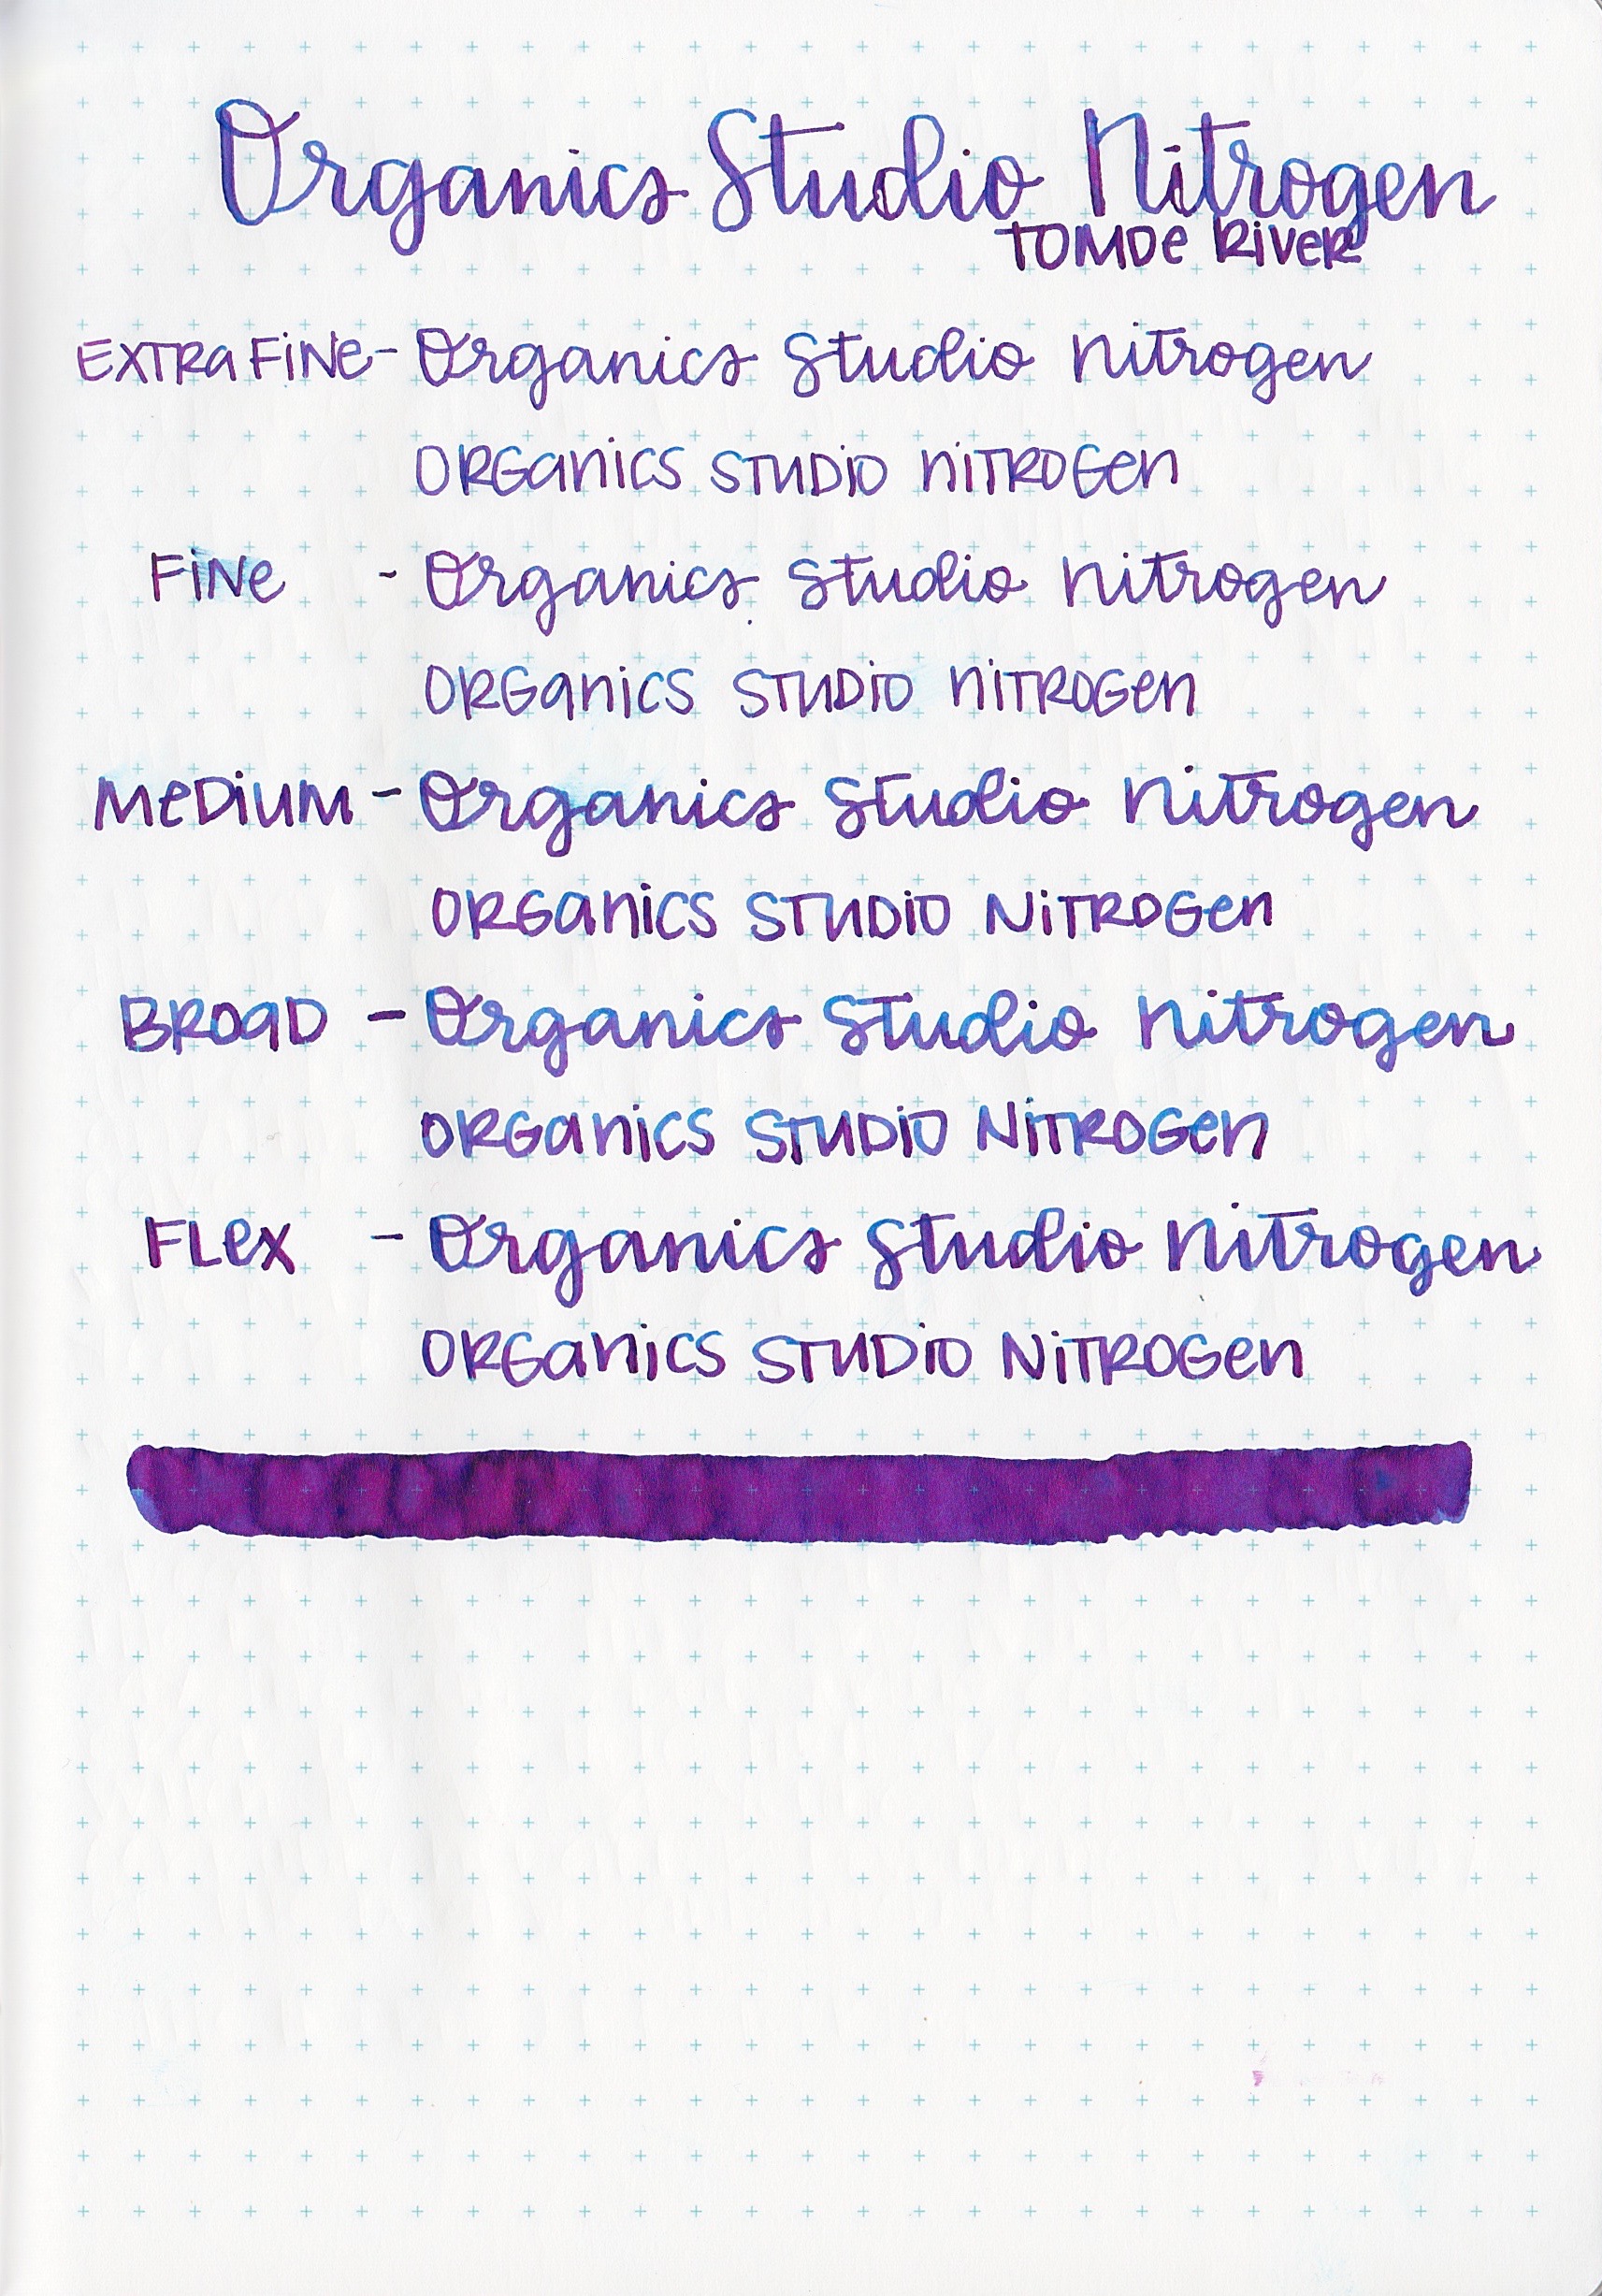 Organics Studio Nitrogen
TOMOe RiveR
EXTRa FiNe - Organics Studio Nitrogen
ORGanics STUDiO niTROGen
FiNe - Organics Studio Nitrogen
ORGanics STUDiO niTROGen
MeDiUM - Organics Studio Nitrogen
ORGanics STUDiO NiTROGen
BROaD - Organics Studio Nitrogen
ORGanics STUDiO NiTROGen
FLex - Organics Studio Nitrogen
ORGanics STUDiO NiTROGen